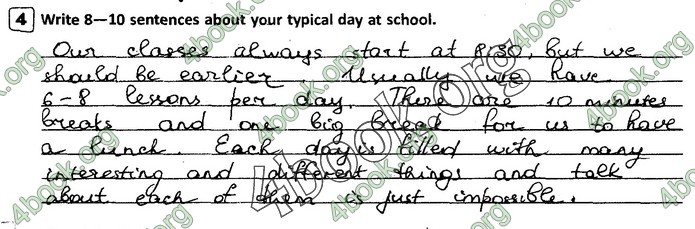 4 Write 8—10 sentences about your typical day at school.
Our classes always start at 8.30, but we
should be earlier. Usually we have
6-8 lessons per day. There are 10 minutes
breaks and one big bread for us to have
a lunch. Each day is filled with many
interesting and different things and talk
about each of them is just impossible.
4book.org